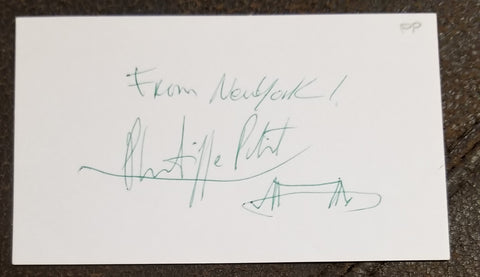 PP
From New York!
Philippe Petit